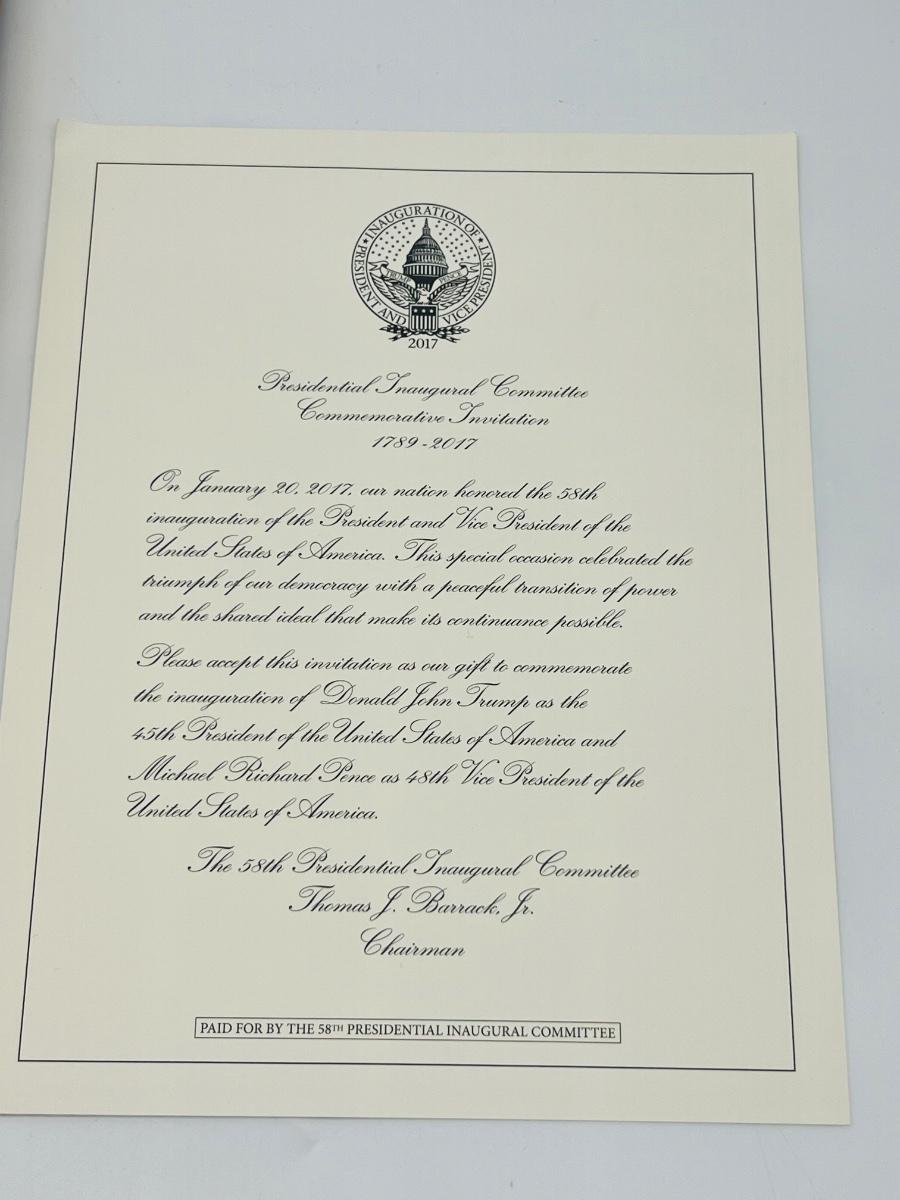 ★ INAUGURATION OF ★
PRESIDENT AND VICE PRESIDENT
TRUMP PENCE
2017
Presidential Inaugural Committee
Commemorative Invitation
1789-2017
On January 20, 2017, our nation honored the 58th
inauguration of the President and Vice President of the
United States of America. This special occasion celebrated the
triumph of our democracy with a peaceful transition of power
and the shared ideal that make its continuance possible.
Please accept this invitation as our gift to commemorate
the inauguration of Donald John Trump as the
45th President of the United States of America and
Michael Richard Pence as 48th Vice President of the
United States of America.
The 58th Presidential Inaugural Committee
Thomas J. Barrack, Jr.
Chairman
PAID FOR BY THE 58TH PRESIDENTIAL INAUGURAL COMMITTEE